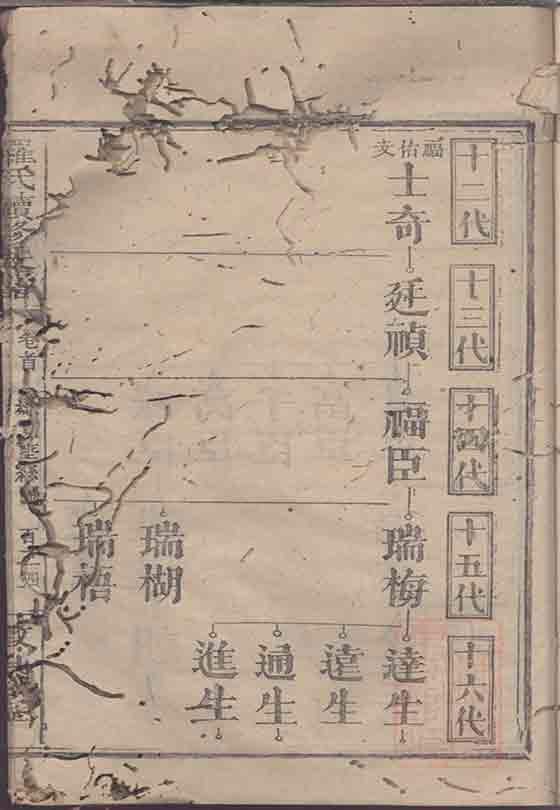 十二代
十三代
十四代
十五代
十六代
福佑支
士奇
廷禎
福臣
瑞梅
瑞楜
瑞梧
達生
遠生
通生
進生
羅氏續修
卷首